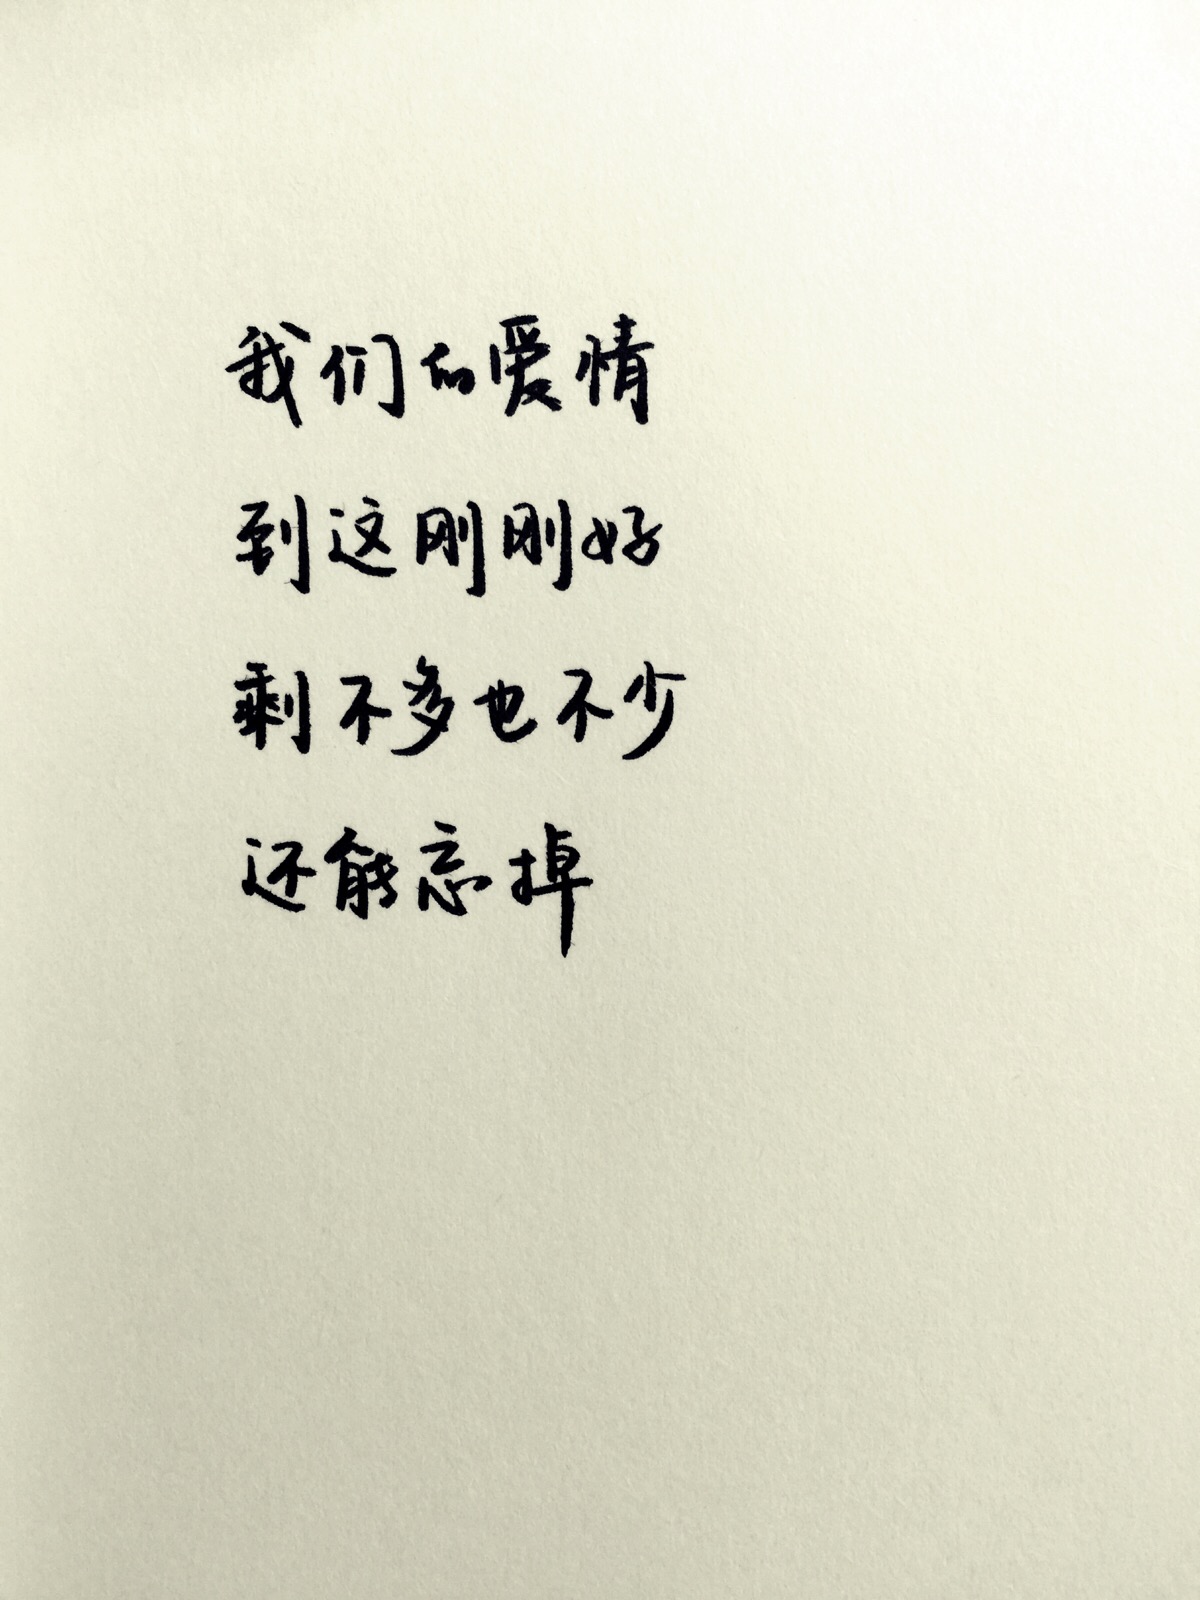 我们的爱情
到这刚刚好
剩不多也不少
还能忘掉